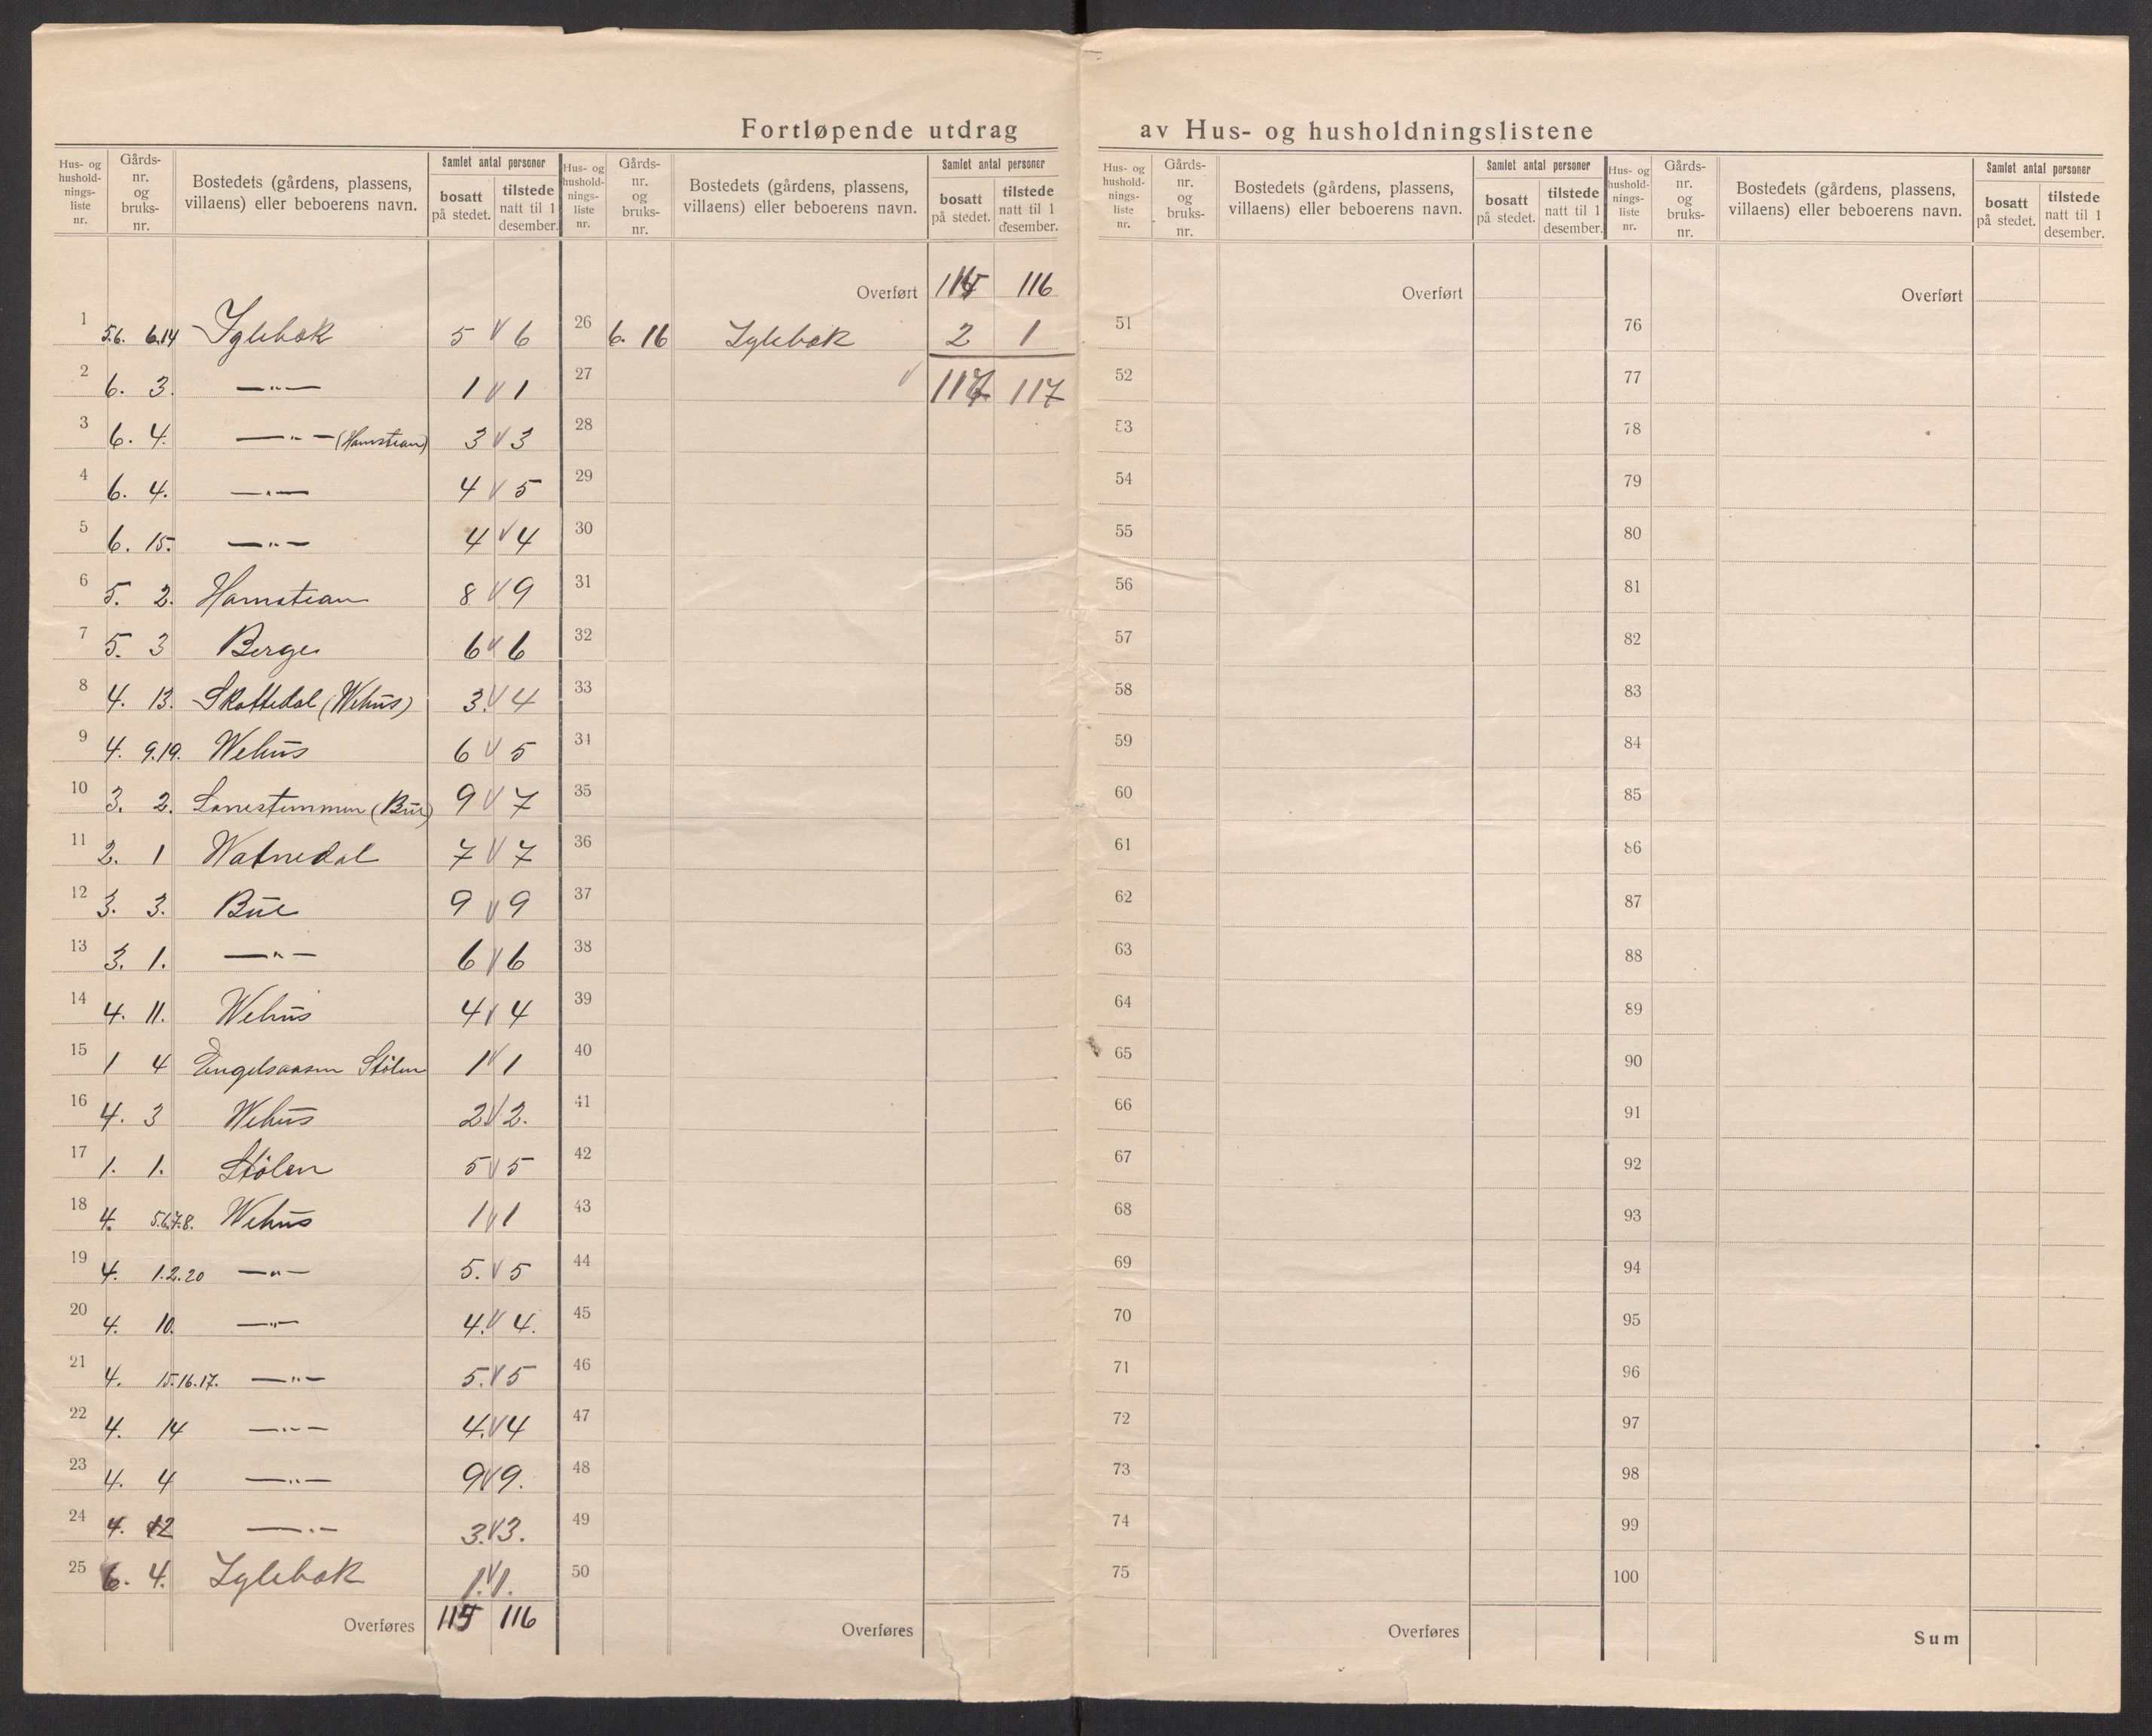 Fortløpende utdrag av Hus- og husholdningslistene
Hus- og husholdningsliste nr. | Gårds-nr. og bruks-nr. | Bostedets (gårdens, plassens, villaens) eller beboerens navn. | Samlet antal personer | bosatt på stedet. | tilstede natt til 1 desember.
1 5.6. 6.14 Iglebæk 5 V 6
2 6. 3. —"— 1 V 1
3 6. 4. —"— (Hamstean) 3 V 3
4 6. 4. —"— 4 V 5
5 6. 15. —"— 4 V 4
6 5. 2. Hamstean 8 V 9
7 5. 3 Berge 6 V 6
8 4. 13. Skottedal (Wehūs) 3. V 4
9 4. 9.19. Wehūs 6 V 5
10 3. 2. (Būe) 9 V 7
11 2. 1 Watnedal 7 V 7
12 3. 3. Būe 9 V 9
13 3. 1. —"— 6 V 6
14 4. 11. Wehūs 4 V 4
15 1 4 Engelsaasen Stölen 1 V 1
16 4. 3 Wehūs 2 V 2.
17 1. 1. Stölen 5 V 5
18 4. 5.6.7.8. Wehūs 1 V 1
19 4. 1.2.20 —"— 5. V 5
20 4. 10. —"— 4. V 4.
21 4. 15.16.17. —"— 5. V 5
22 4. 14 —"— 4. V 4
23 4. 4 —"— 9 V 9.
24 4. 12 —"— 3. V 3.
25 6. 4. Iglebæk 1. V 1.
Overføres 115 116
Hus- og husholdningsliste nr. | Gårds-nr. og bruks-nr. | Bostedets (gårdens, plassens, villaens) eller beboerens navn. | Samlet antal personer | bosatt på stedet. | tilstede natt til 1 desember.
Overført 115 116
26 6. 16 Iglebæk 2 1
27 V 117 117
28
29
30
31
32
33
34
35
36
37
38
39
40
41
42
43
44
45
46
47
48
49
50
Overføres
Hus- og husholdningsliste nr. | Gårds-nr. og bruks-nr. | Bostedets (gårdens, plassens, villaens) eller beboerens navn. | Samlet antal personer | bosatt på stedet. | tilstede natt til 1 desember.
Overført
51
52
53
54
55
56
57
58
59
60
61
62
63
64
65
66
67
68
69
70
71
72
73
74
75
Overføres
Hus- og husholdningsliste nr. | Gårds-nr. og bruks-nr. | Bostedets (gårdens, plassens, villaens) eller beboerens navn. | Samlet antal personer | bosatt på stedet. | tilstede natt til 1 desember.
Overført
76
77
78
79
80
81
82
83
84
85
86
87
88
89
90
91
92
93
94
95
96
97
98
99
100
Sum